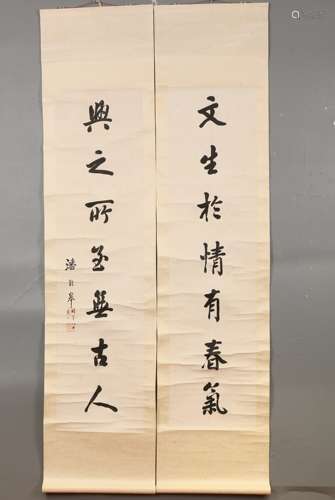 文生於情有春氣
興之所至無古人
潘龄皋